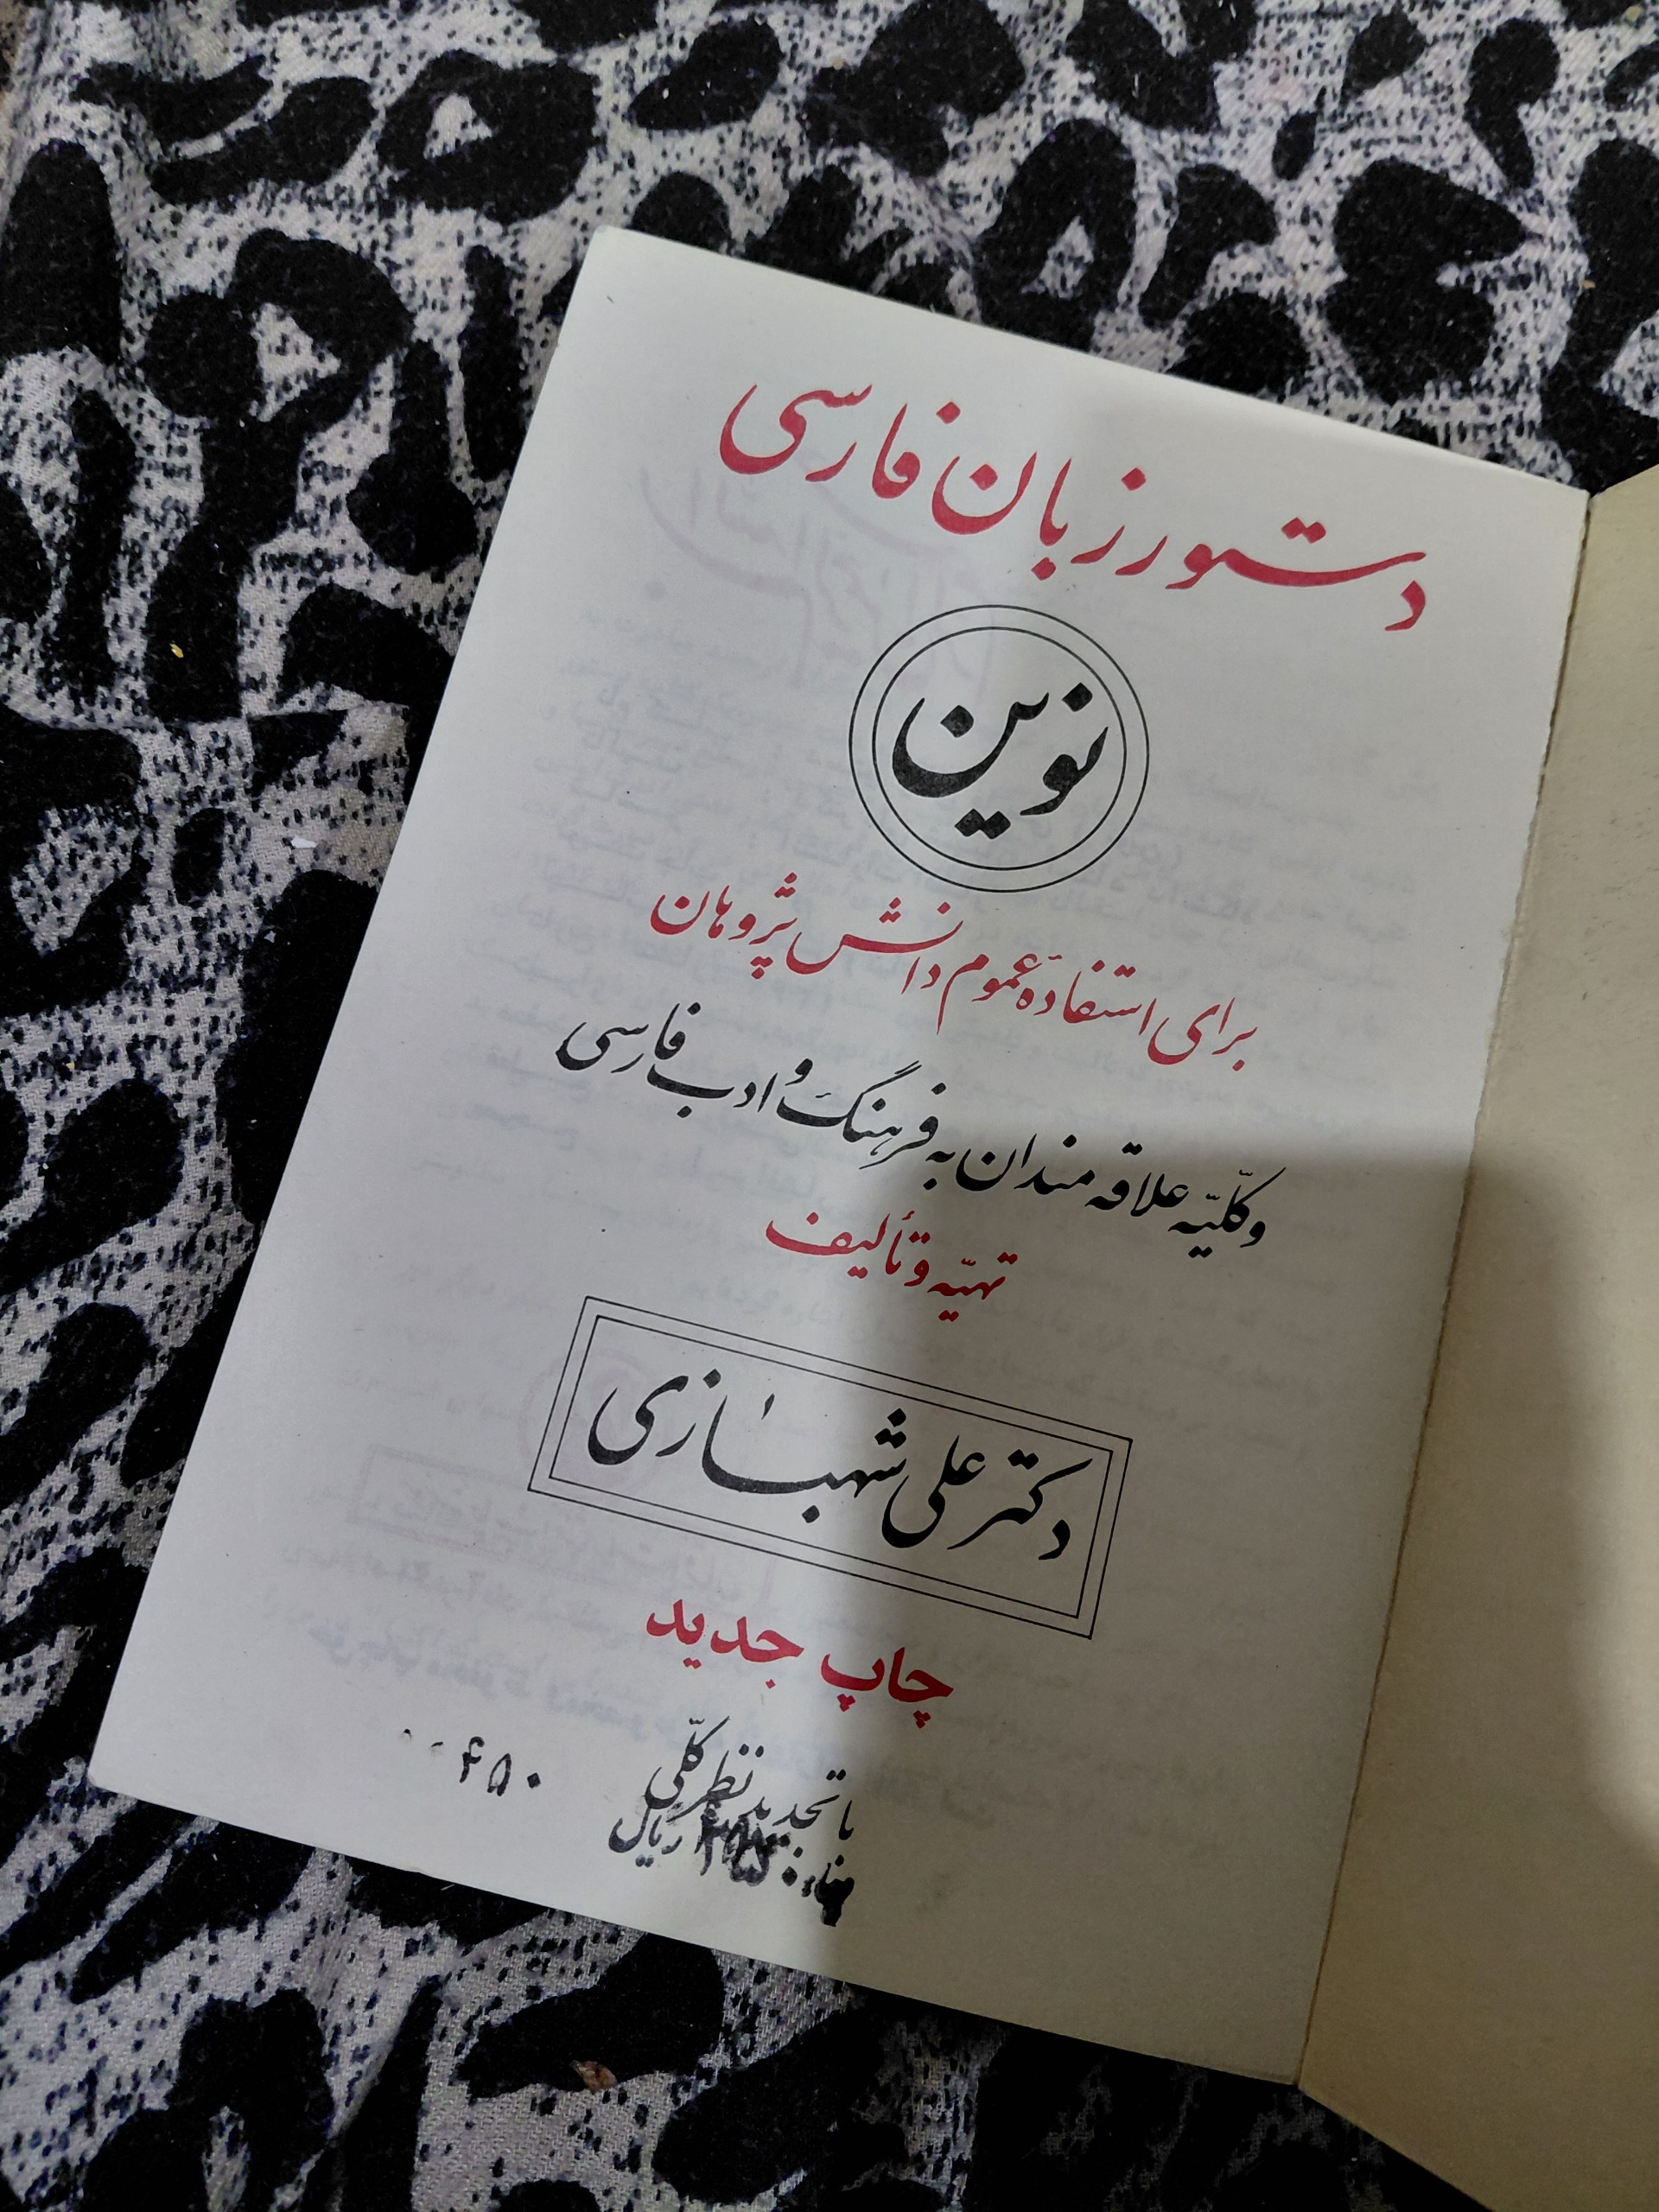 دستور زبان فارسی
نوین
برای استفادهٔ عموم دانش پژوهان
و کلّیّه علاقه مندان به فرهنگ و ادب فارسی
تهیّه و تألیف
دکتر علی شهبازی
چاپ جدید
با تجدید نظر کلّی
ریال
۶۵۰